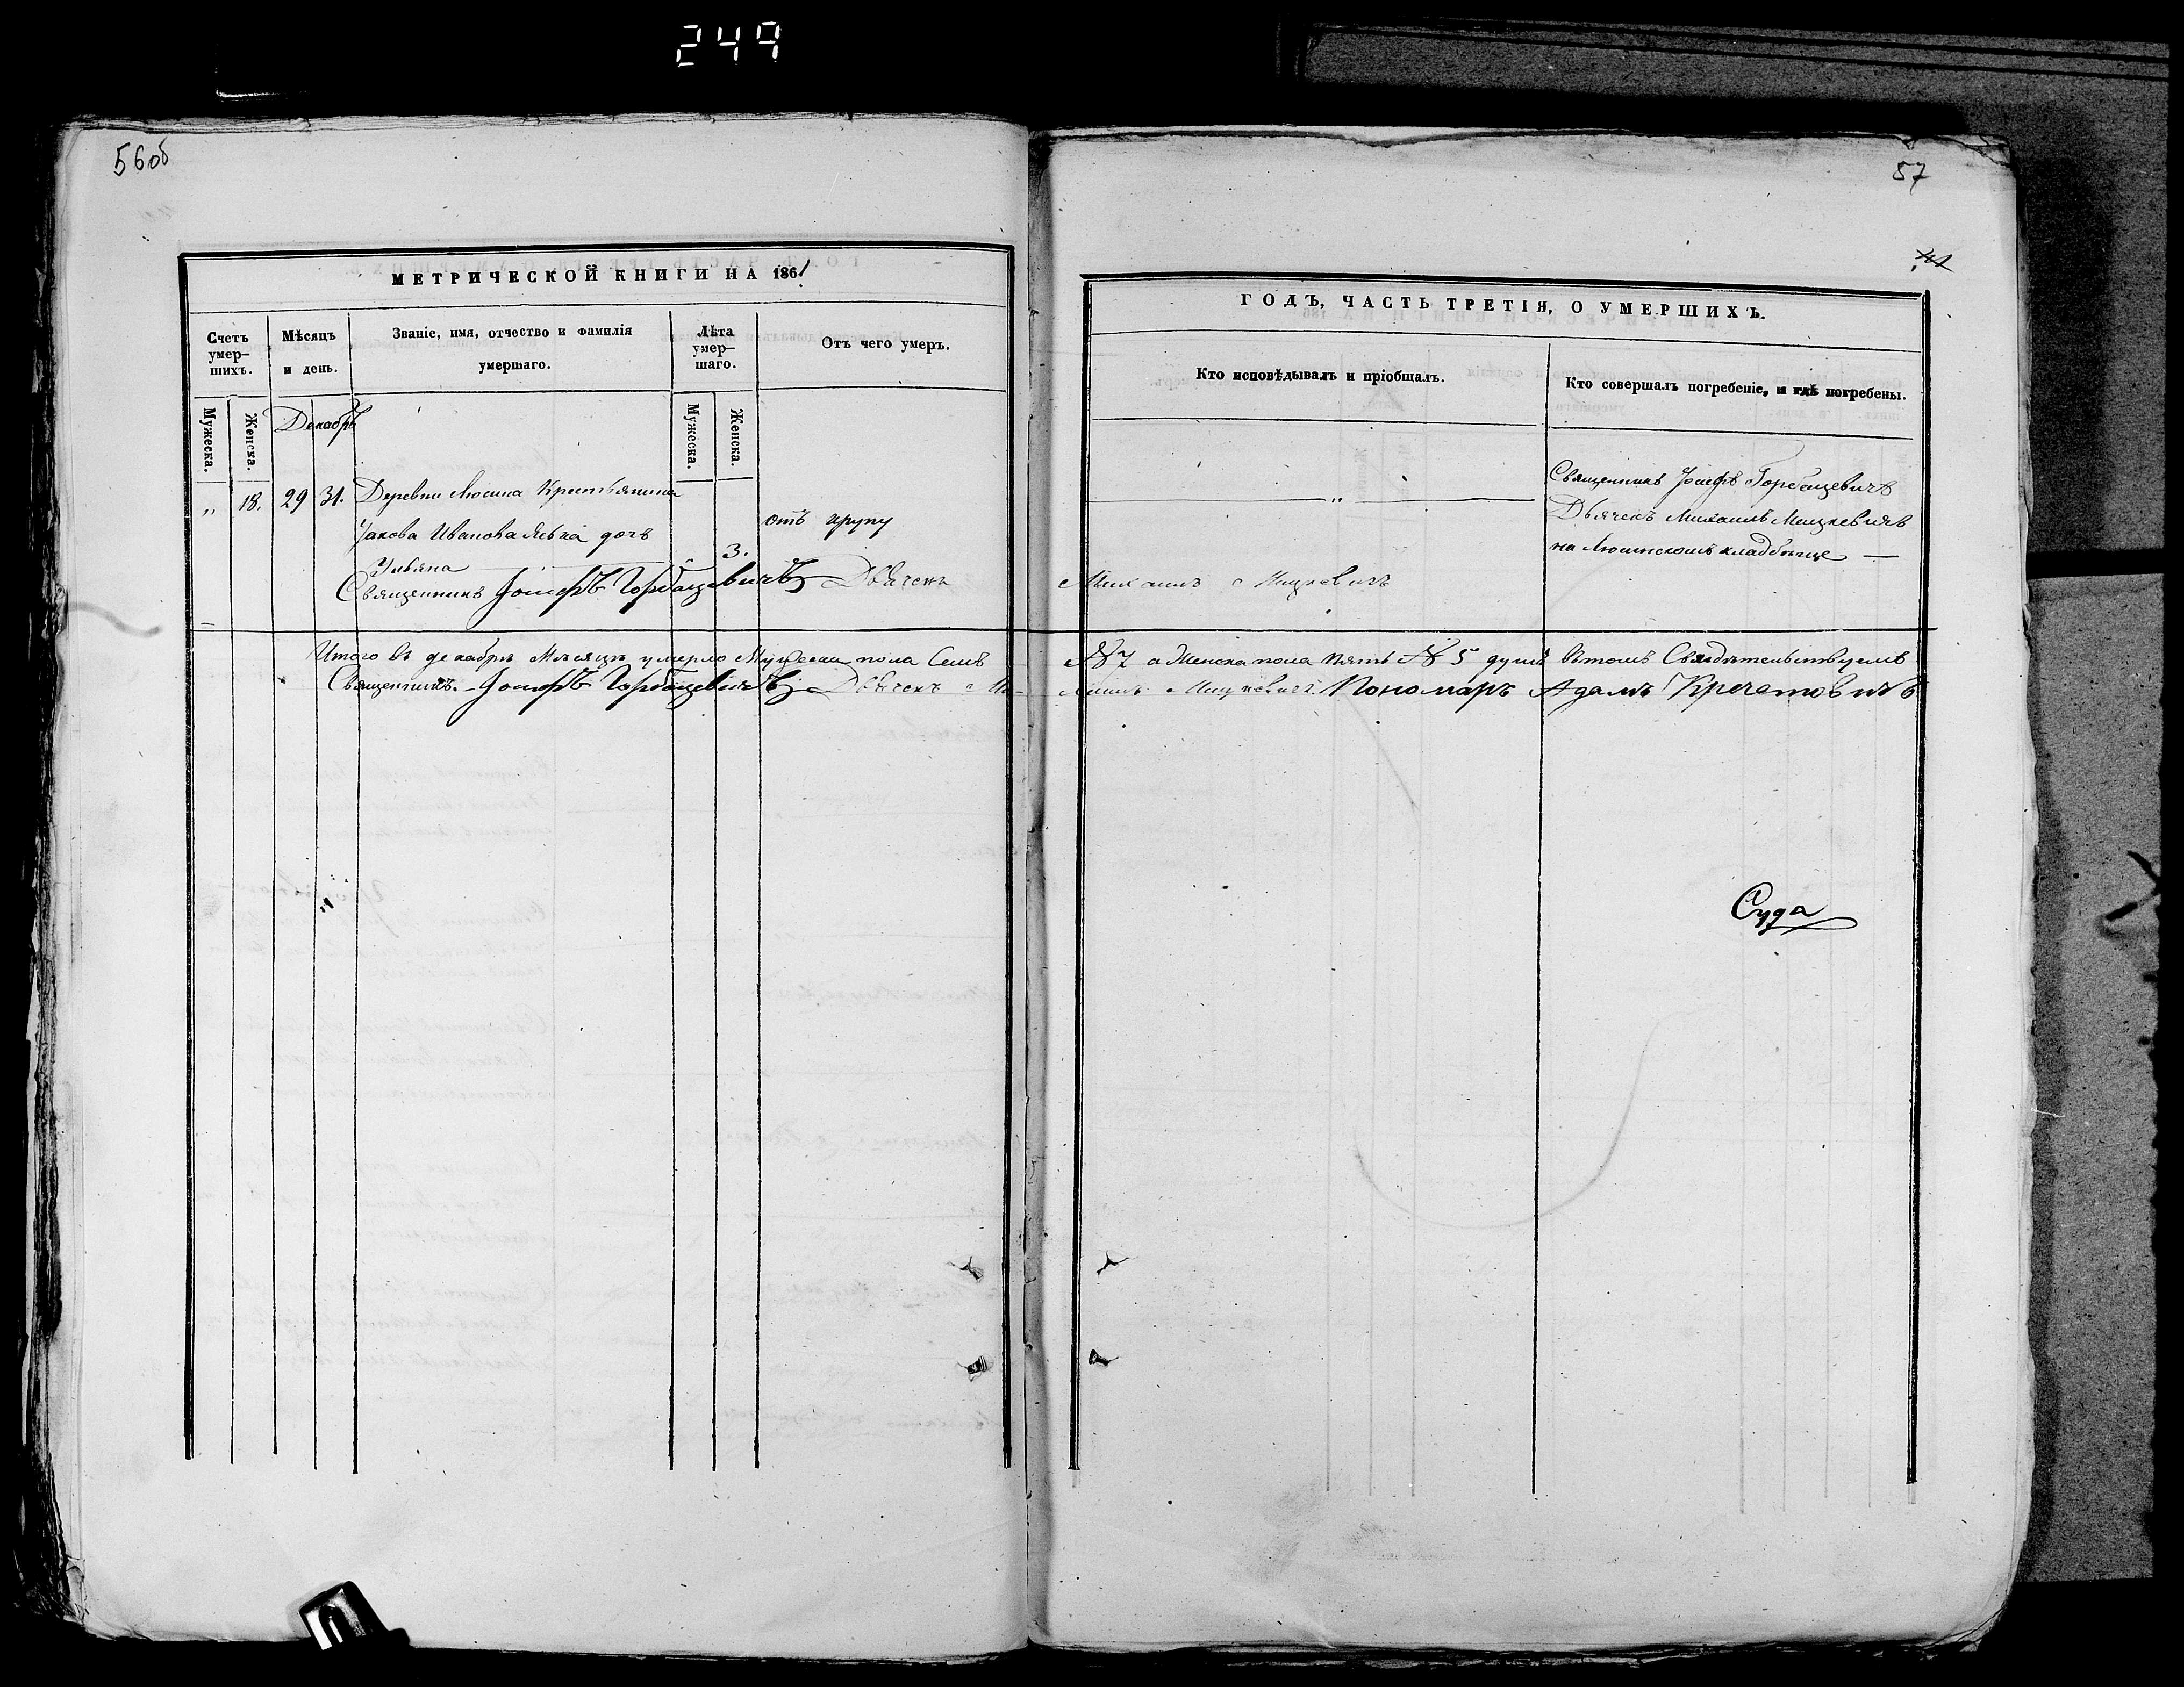 249
56об
57
МЕТРИЧЕСКОЙ КНИГИ НА 1861
ГОДЪ, ЧАСТЬ ТРЕТІЯ, О УМЕРШИХЪ.
Счетъ умер-шихъ.
Мѣсяцъ и день.
Званіе, имя, отчество и фамилія умершаго.
Лѣта умер-шаго.
Отъ чего умеръ.
Кто исповѣдывалъ и пріобщалъ.
Кто совершалъ погребеніе, и гдѣ погребены.
Мужеска.
Женска.
Декабрь
Мужеска.
Женска.
„ 18. 29 31. Деревни Люсина Крестьянина
Якова Иванова дочъ
Ульяна
3.
отъ крупу
„
Священникъ Іосифъ Горбацевичъ
Дьячекъ Михаилъ Мицкевичъ
на Люсинскомъ кладбище —
Священникъ Іосифъ Горбацевичъ Дьячекъ Михаилъ Мицкевичъ
Итого въ декабрѣ Мѣсяцѣ умерло Мужеска пола Семь № 7 а Женска пола пять № 5 душъ втомъ Свидѣтельствуемъ
Священникъ Іосифъ Горбацевичъ Дьячекъ Михаилъ Мицкевичъ Пономарь Адамъ Кречетовичъ
Суда